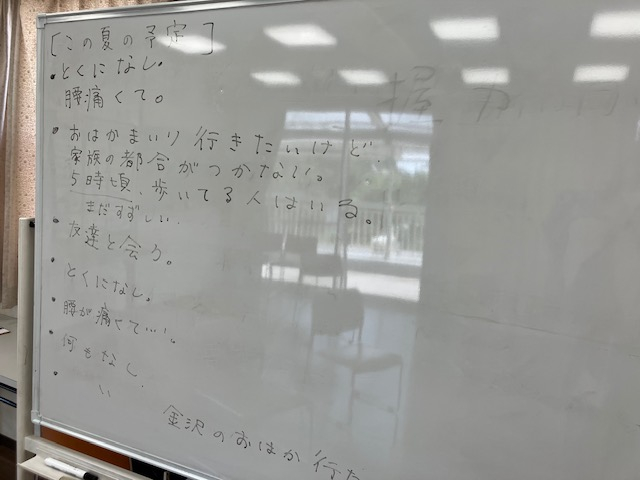 [この夏の予定]
・とくになし。
腰痛くて。
・おはかまいり行きたいけど、
家族の都合がつかない。
5時頃、歩いてる人はいる。
まだすずしい.
・友達と会う。
・とくになし。
・腰が痛くて…。
・何もなし、
・〃
金沢のおはか行た
握力